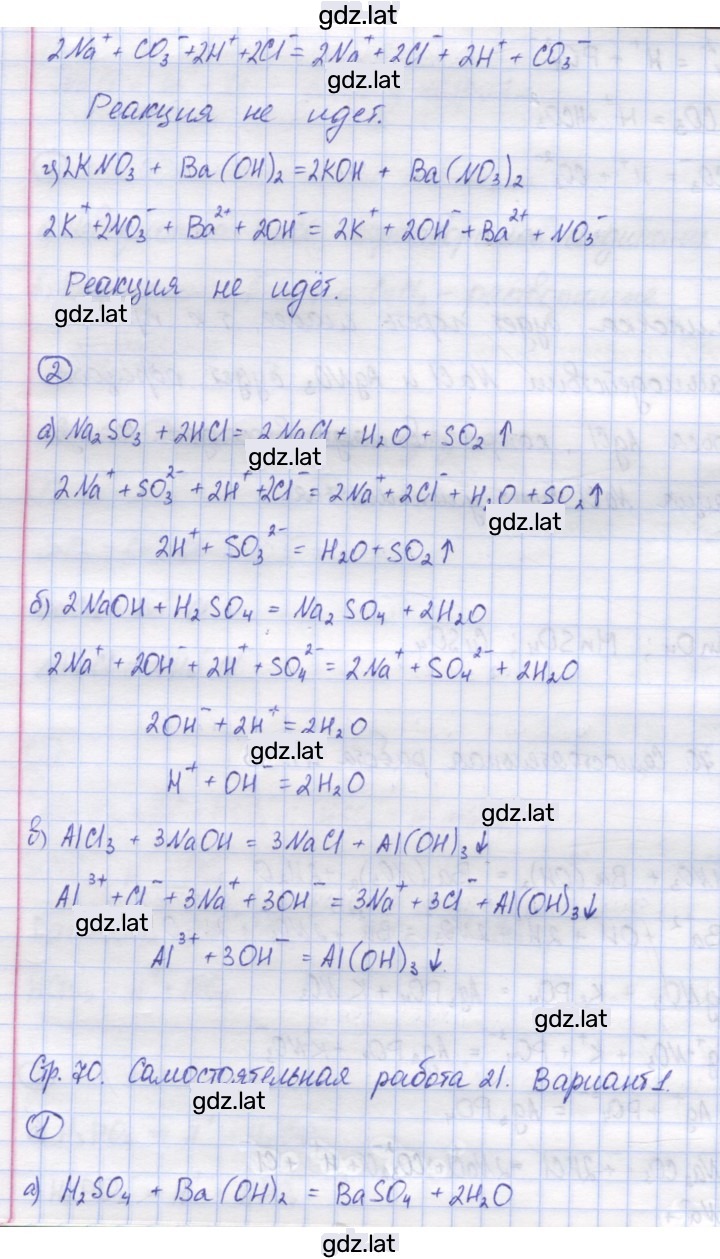 gdz.lat
2Na⁺ + CO₃⁻ + 2H⁺ + 2Cl⁻ = 2Na⁺ + 2Cl⁻ + 2H⁺ + CO₃⁻
gdz.lat
Реакция не идет.
г) 2KNO₃ + Ba(OH)₂ = 2KOH + Ba(NO₃)₂
2K⁺ + 2NO₃⁻ + Ba²⁺ + 2OH⁻ = 2K⁺ + 2OH⁻ + Ba²⁺ + NO₃⁻
Реакция не идёт.
gdz.lat
2
а) Na₂SO₃ + 2HCl = 2NaCl + H₂O + SO₂↑
gdz.lat
2Na⁺ + SO₃²⁻ + 2H⁺ + 2Cl⁻ = 2Na⁺ + 2Cl⁻ + H₂O + SO₂↑
gdz.lat
2H⁺ + SO₃²⁻ = H₂O + SO₂↑
б) 2NaOH + H₂SO₄ = Na₂SO₄ + 2H₂O
2Na⁺ + 2OH⁻ + 2H⁺ + SO₄²⁻ = 2Na⁺ + SO₄²⁻ + 2H₂O
2OH⁻ + 2H⁺ = 2H₂O
gdz.lat
H⁺ + OH⁻ = 2H₂O
gdz.lat
в) AlCl₃ + 3NaOH = 3NaCl + Al(OH)₃↓
Al³⁺ + Cl⁻ + 3Na⁺ + 3OH⁻ = 3Na⁺ + 3Cl⁻ + Al(OH)₃↓
gdz.lat
Al³⁺ + 3OH⁻ = Al(OH)₃↓.
gdz.lat
Стр. 70. Самостоятельная работа 21. Вариант 1.
gdz.lat
1
а) H₂SO₄ + Ba(OH)₂ = BaSO₄ + 2H₂O
gdz.lat